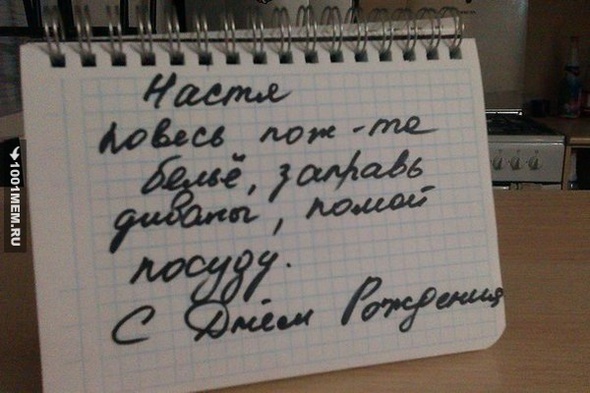 Настя
повесь пож-та
бельё, заправь
диваны, помой
посуду.
С Днём Рождения
1001MEM.RU